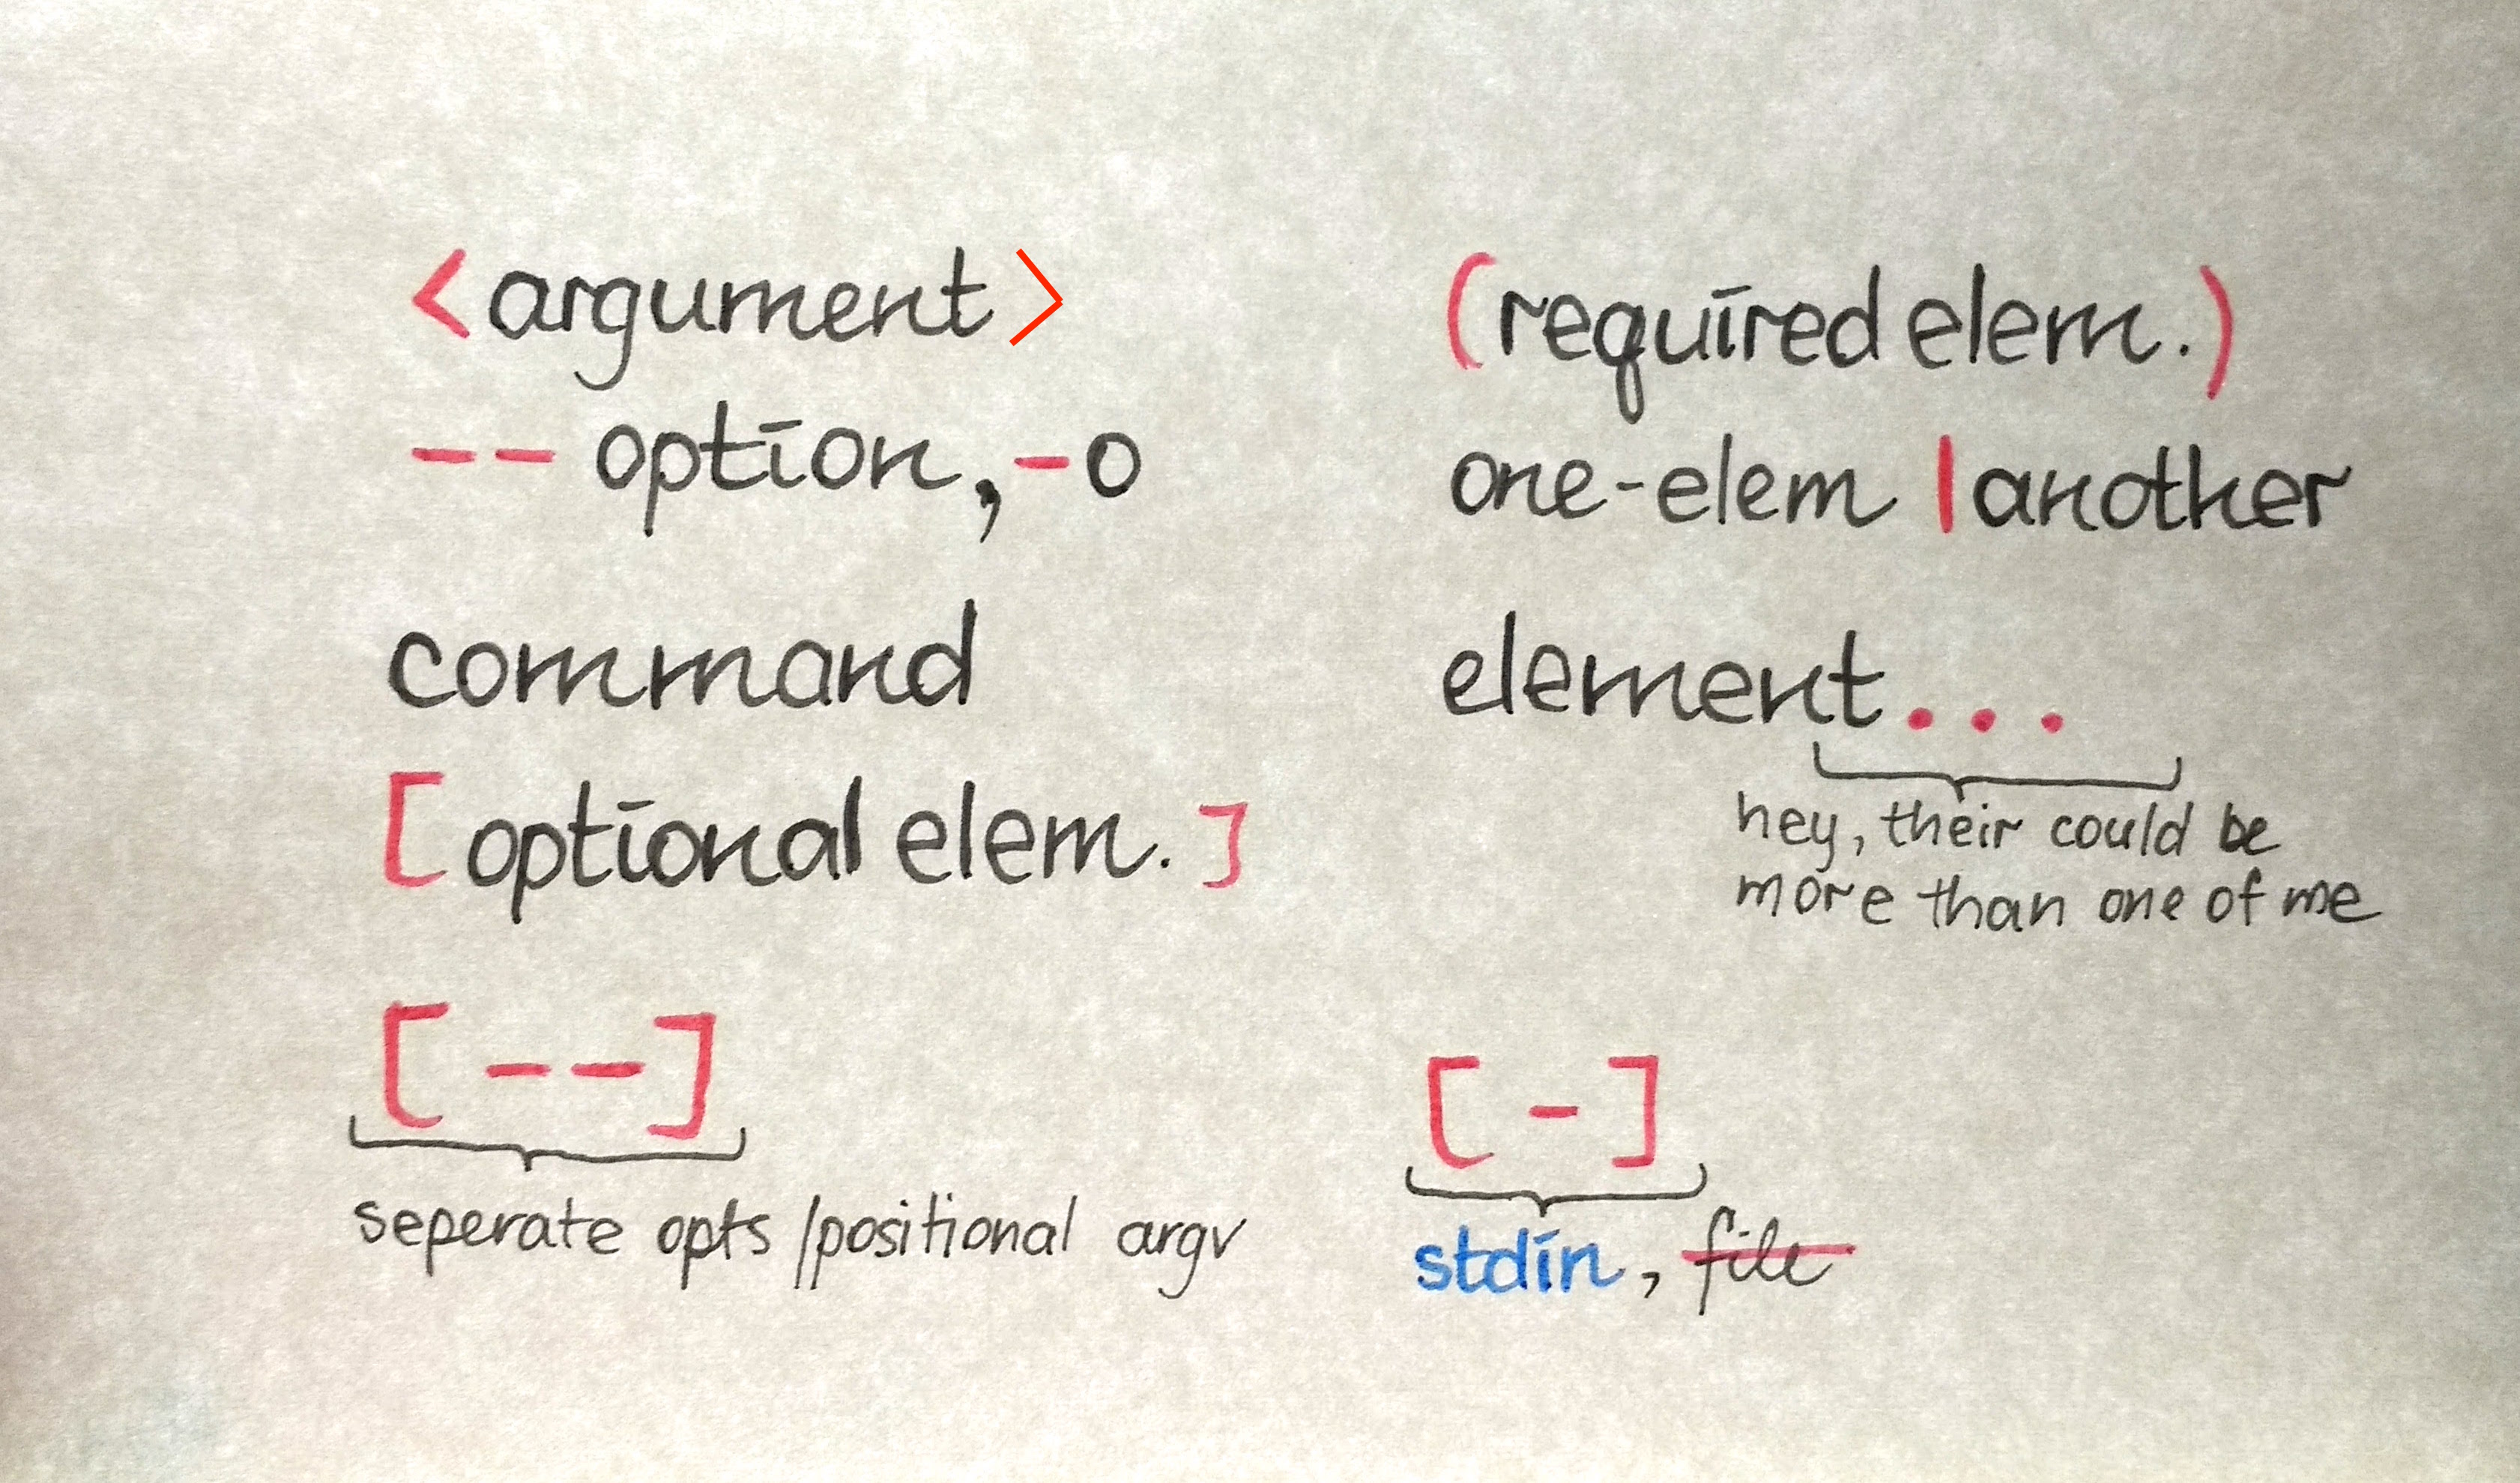 <argument>
--option, -o
command
[optional elem.]
[--]
seperate opts /positional argv
(required elem.)
one-elem |another
element...
hey, their could be
more than one of me
[-]
stdin, file